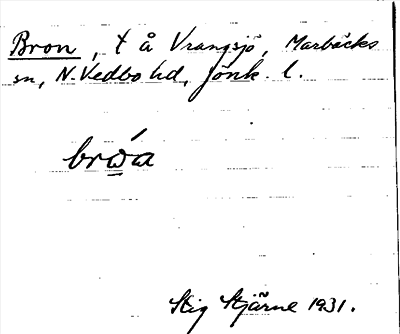 Bron, t å Vrangsjö, Marbäcks
sn, N. Vedbo hd, Jönk. l.
brώa
Stig Stjärne 1931.